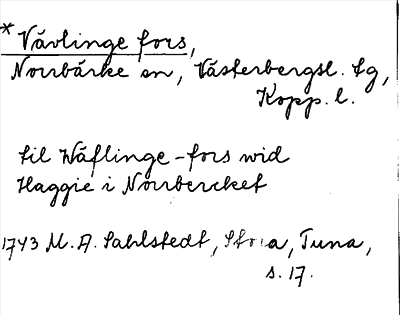 * Vävlinge fors,
Norrbärke sn, Västerbergsl. tg,
Kopp. l.
til Wäflinge-fors wid
Haggie i Norrbercket
1743 M. A. Sahlstedt, Stora, Tuna,
s. 17.